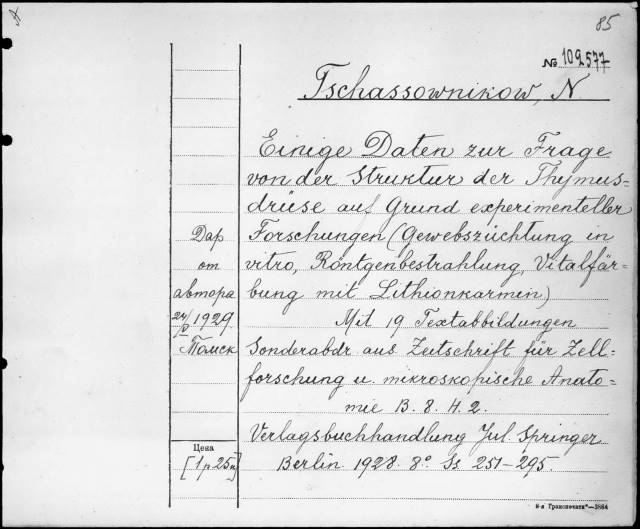 85
№ 102577
Tschassownikow, N.
Einige Daten zur Frage
von der Struktur der Thymus=
drüse auf Grund experimenteller
Forschungen (Gewebszüchtung in
vitro, Röntgenbestrahlung, Vitalfär=
bung mit Lithionkarmin)
Mit 19 Textabbildungen
Sonderabdr aus Zeitschrift für Zell=
forschung u. mikroskopische Anato=
mie B. 8. H. 2.
Verlagsbuchhandlung Jul. Springer
Berlin 1928. 8° Ss 251–295.
Дар
от
автора
24/IV 1929
Томск
Цена
[1р 25к]
8-я Гранпечати*—3864